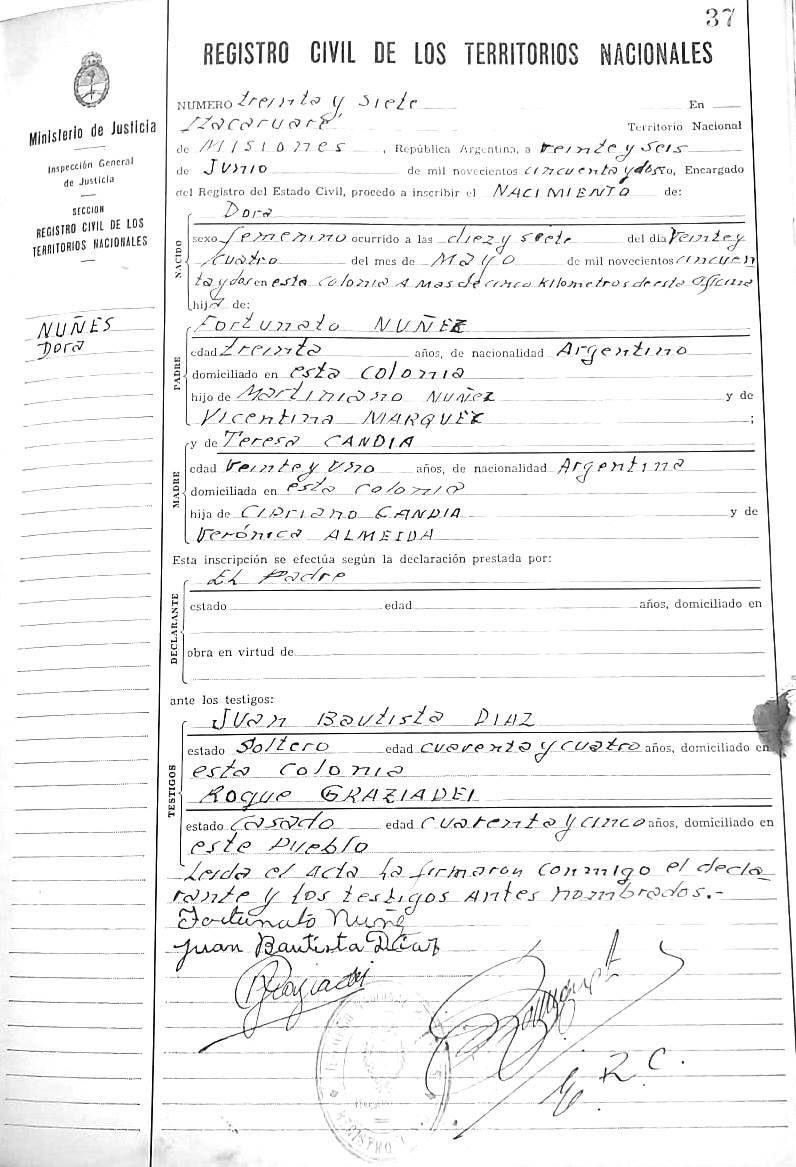 37
REGISTRO CIVIL DE LOS TERRITORIOS NACIONALES
Ministerio de Justicia
Inspección General
de Justicia
SECCION
REGISTRO CIVIL DE LOS
TERRITORIOS NACIONALES
NUÑES
Dora
NUMERO treinta y siete En
Itacaruaré Territorio Nacional
de MISIONES, República Argentina, a veinte y seis
de JUNIO de mil novecientos cincuenta y dos yo, Encargado
del Registro del Estado Civil, procedo a inscribir el NACIMIENTO de:
NACIDO
Dora
sexo femenino ocurrido a las diez y siete del día veinte y
cuatro del mes de MAYO de mil novecientos cincuen
ta y dos en esta colonia A mas de cinco Kilometros de esta Oficina
hija de:
PADRE
Fortunato NUÑEZ
edad treinta años, de nacionalidad Argentino
domiciliado en esta colonia
hijo de Martiniano NUÑEZ y de
Vicentina MARQUEZ ;
MADRE
y de Teresa CANDIA
edad veinte y uno años, de nacionalidad Argentina
domiciliada en esta colonia
hija de CIPRIANO CANDIA y de
Verónica ALMEIDA
Esta inscripción se efectúa según la declaración prestada por:
DECLARANTE
El Padre
estado edad años, domiciliado en
obra en virtud de
ante los testigos:
TESTIGOS
Juan Bautista DIAZ
estado Soltero edad cuarenta y cuatro años, domiciliado en
esta colonia
Roque GRAZIADEI
estado Casado edad cuarenta y cinco años, domiciliado en
este Pueblo
Leida el acta la firmaron conmigo el decla
rante y los testigos Antes nombrados.-
Fortunato Nuñe
Juan Bautista Diaz
E. R. C.
REGISTRO